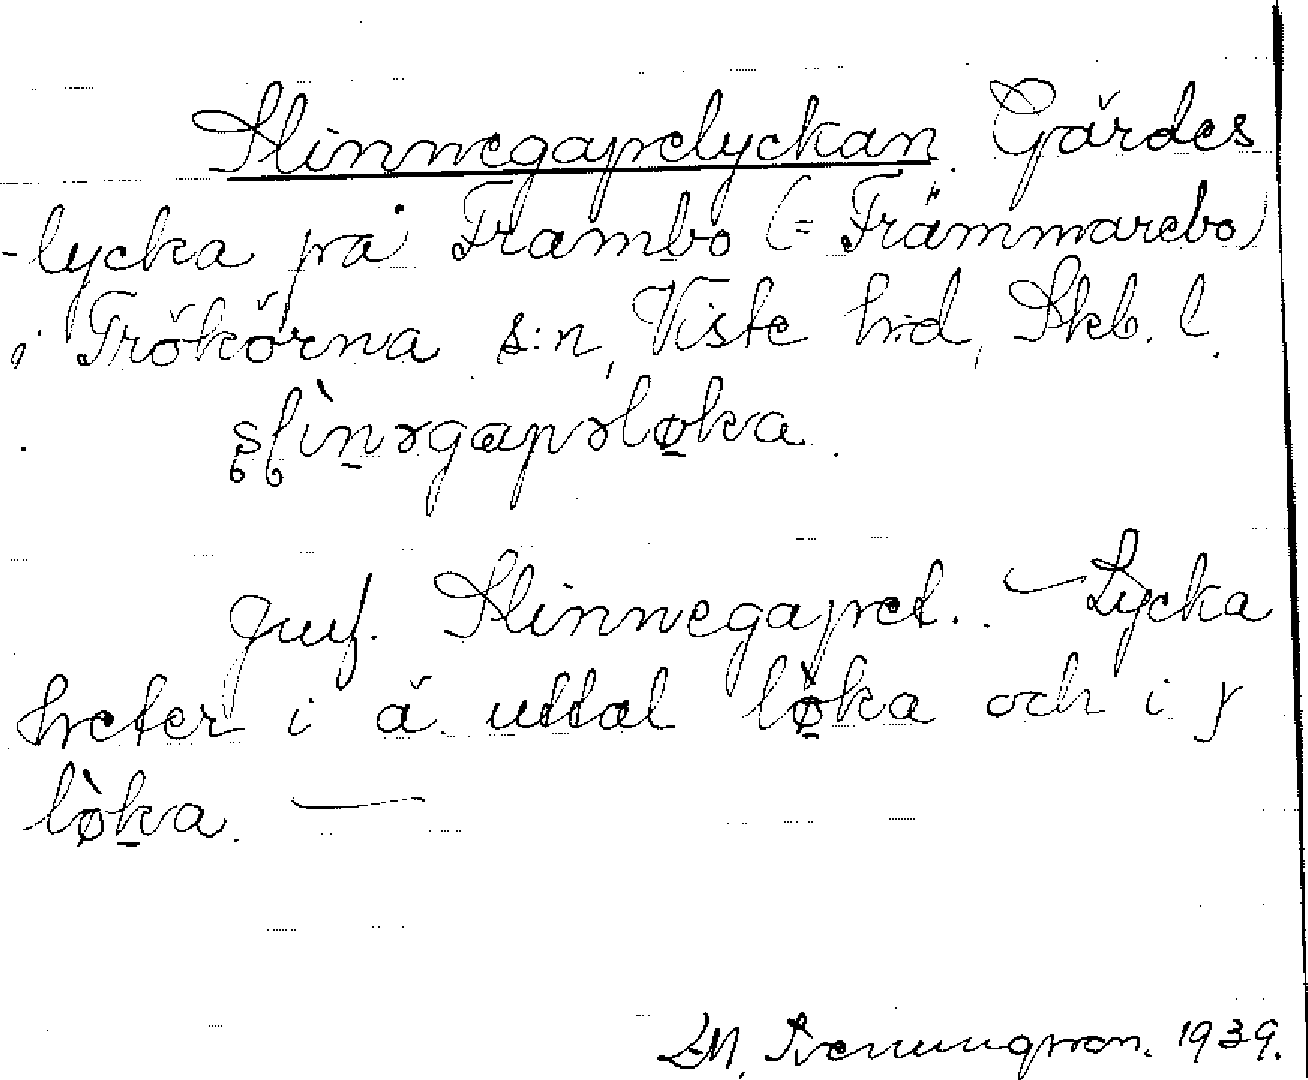 Slinnegapelyckan. Gärdes
-lycka på Frambo (= Främmarebo)
i Trökörna s:n, Viste hd, Skb. l.
slìnəgapəløka.
Jmf. Slinnegapet. – Lycka
heter i ä. uttal lø̀ka och i y
lø̀ka. —
1939.